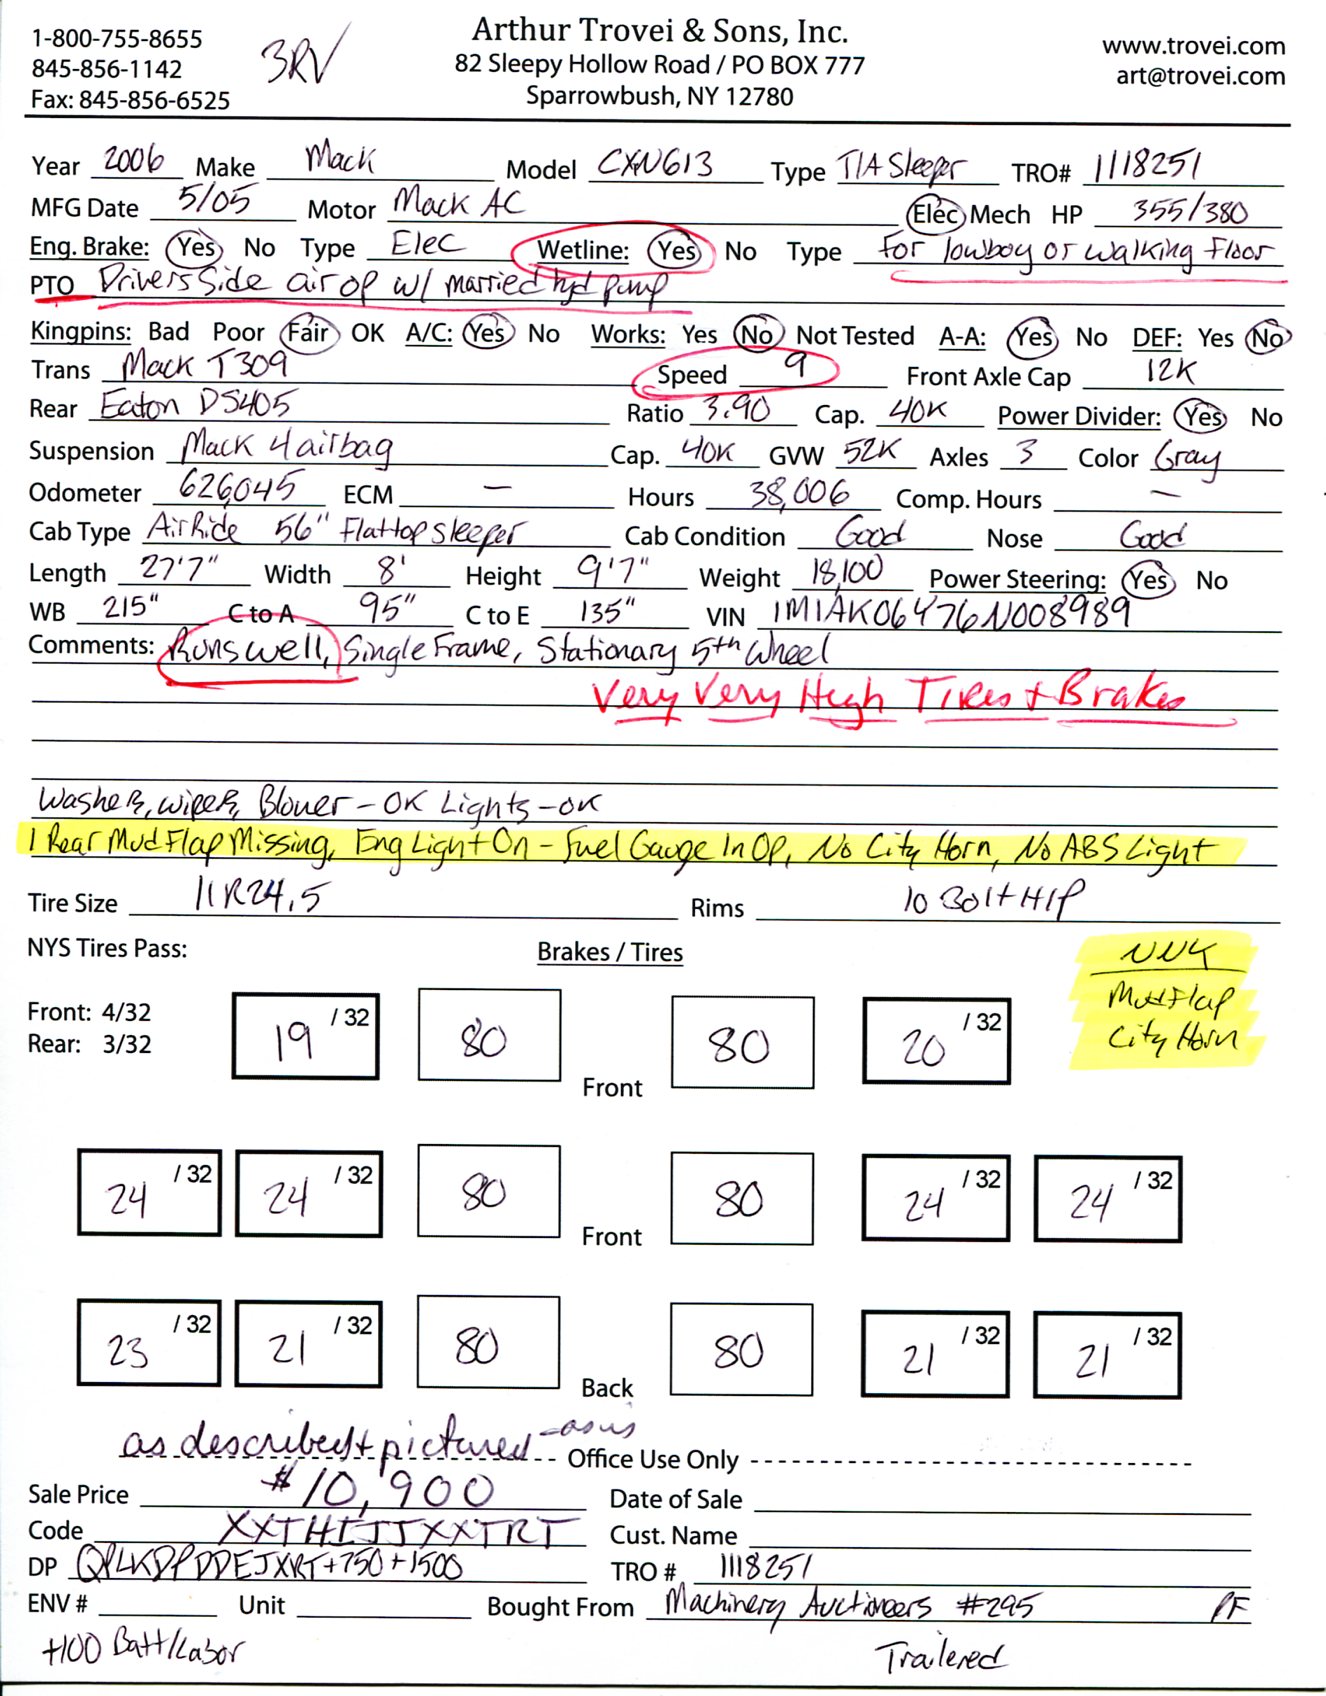 1-800-755-8655
845-856-1142
Fax: 845-856-6525
3RV
Arthur Trovei & Sons, Inc.
82 Sleepy Hollow Road / PO BOX 777
Sparrowbush, NY 12780
www.trovei.com
art@trovei.com
Year 2006 Make Mack Model CXN613 Type T/A Sleeper TRO# 1118251
MFG Date 5/05 Motor Mack AC Elec Mech HP 355/380
Eng. Brake: Yes No Type Elec Wetline: Yes No Type For lowboy or walking floor
PTO Drivers Side air op w/ married hyd pump
Kingpins: Bad Poor Fair OK A/C: Yes No Works: Yes No Not Tested A-A: Yes No DEF: Yes No
Trans Mack T309 Speed 9 Front Axle Cap 12K
Rear Eaton DS405 Ratio 3.90 Cap. 40K Power Divider: Yes No
Suspension Mack 4 airbag Cap. 40K GVW 52K Axles 3 Color Gray
Odometer 626,045 ECM — Hours 38,006 Comp. Hours —
Cab Type AirRide 56" Flattop sleeper Cab Condition Good Nose Good
Length 27'7" Width 8' Height 9'7" Weight 18,100 Power Steering: Yes No
WB 215" C to A 95" C to E 135" VIN 1M1AK06Y76N008989
Comments: Runs well, Single Frame, Stationary 5th Wheel
Very Very High Tires + Brakes
Washer, wiper, Blower - OK Lights - OK
1 Rear Mud Flap Missing, Eng Light On - Fuel Gauge In Op, No City Horn, No ABS Light
Tire Size 11R24.5 Rims 10 Bolt H/P
NYS Tires Pass: Brakes / Tires
NNY
Mud Flap
City Horn
Front: 4/32
Rear: 3/32
19 /32 80 Front 80 20 /32
24 /32 24 /32 80 Front 80 24 /32 24 /32
23 /32 21 /32 80 Back 80 21 /32 21 /32
as described + pictured - as is
Office Use Only
Sale Price $10,900 Date of Sale
Code XXTHIJJXXTRT Cust. Name
DP QPLKDPDDEJXRT+750+1500 TRO # 1118251
ENV # Unit Bought From Machinery Auctioneers #295 PF
+100 Batt/Labor Trailered